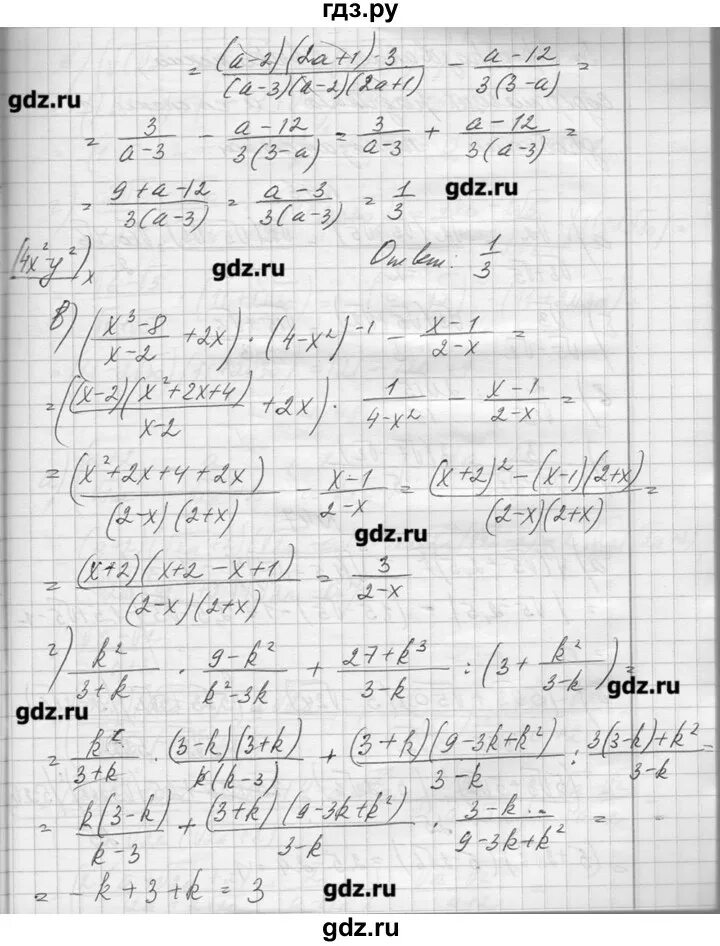 гдз.ру
= (a-2)(2a+1)·3/((a-3)(a-2)(2a+1)) - (a-12)/(3(3-a)) =
gdz.ru
= 3/(a-3) - (a-12)/(3(3-a)) = 3/(a-3) + (a-12)/(3(a-3)) =
= (9+a-12)/(3(a-3)) = (a-3)/(3(a-3)) = 1/3
gdz.ru
(4x²-y²)x
gdz.ru
Ответ: 1/3
в) ((x³-8)/(x-2) + 2x) · (4-x²)⁻¹ - (x-1)/(2-x) =
= ((x-2)(x²+2x+4)/(x-2) + 2x) · 1/(4-x²) - (x-1)/(2-x) =
= (x²+2x+4+2x)/((2-x)(2+x)) - (x-1)/(2-x) = ((x+2)²-(x-1)(2+x))/((2-x)(2+x)) =
gdz.ru
= (x+2)(x+2-x+1)/((2-x)(2+x)) = 3/(2-x)
г) k²/(3+k) · (9-k²)/(k²-3k) + (27+k³)/(3-k) : (3 + k²/(3-k)) =
gdz.ru
gdz.ru
= k²/(3+k) · (3-k)(3+k)/(k(k-3)) + (3+k)(9-3k+k²)/(3-k) : (3(3-k)+k²)/(3-k) =
= k(3-k)/(k-3) + (3+k)(9-3k+k²)/(3-k) · (3-k)/(9-3k+k²) =
= -k+3+k = 3
gdz.ru
gdz.ru